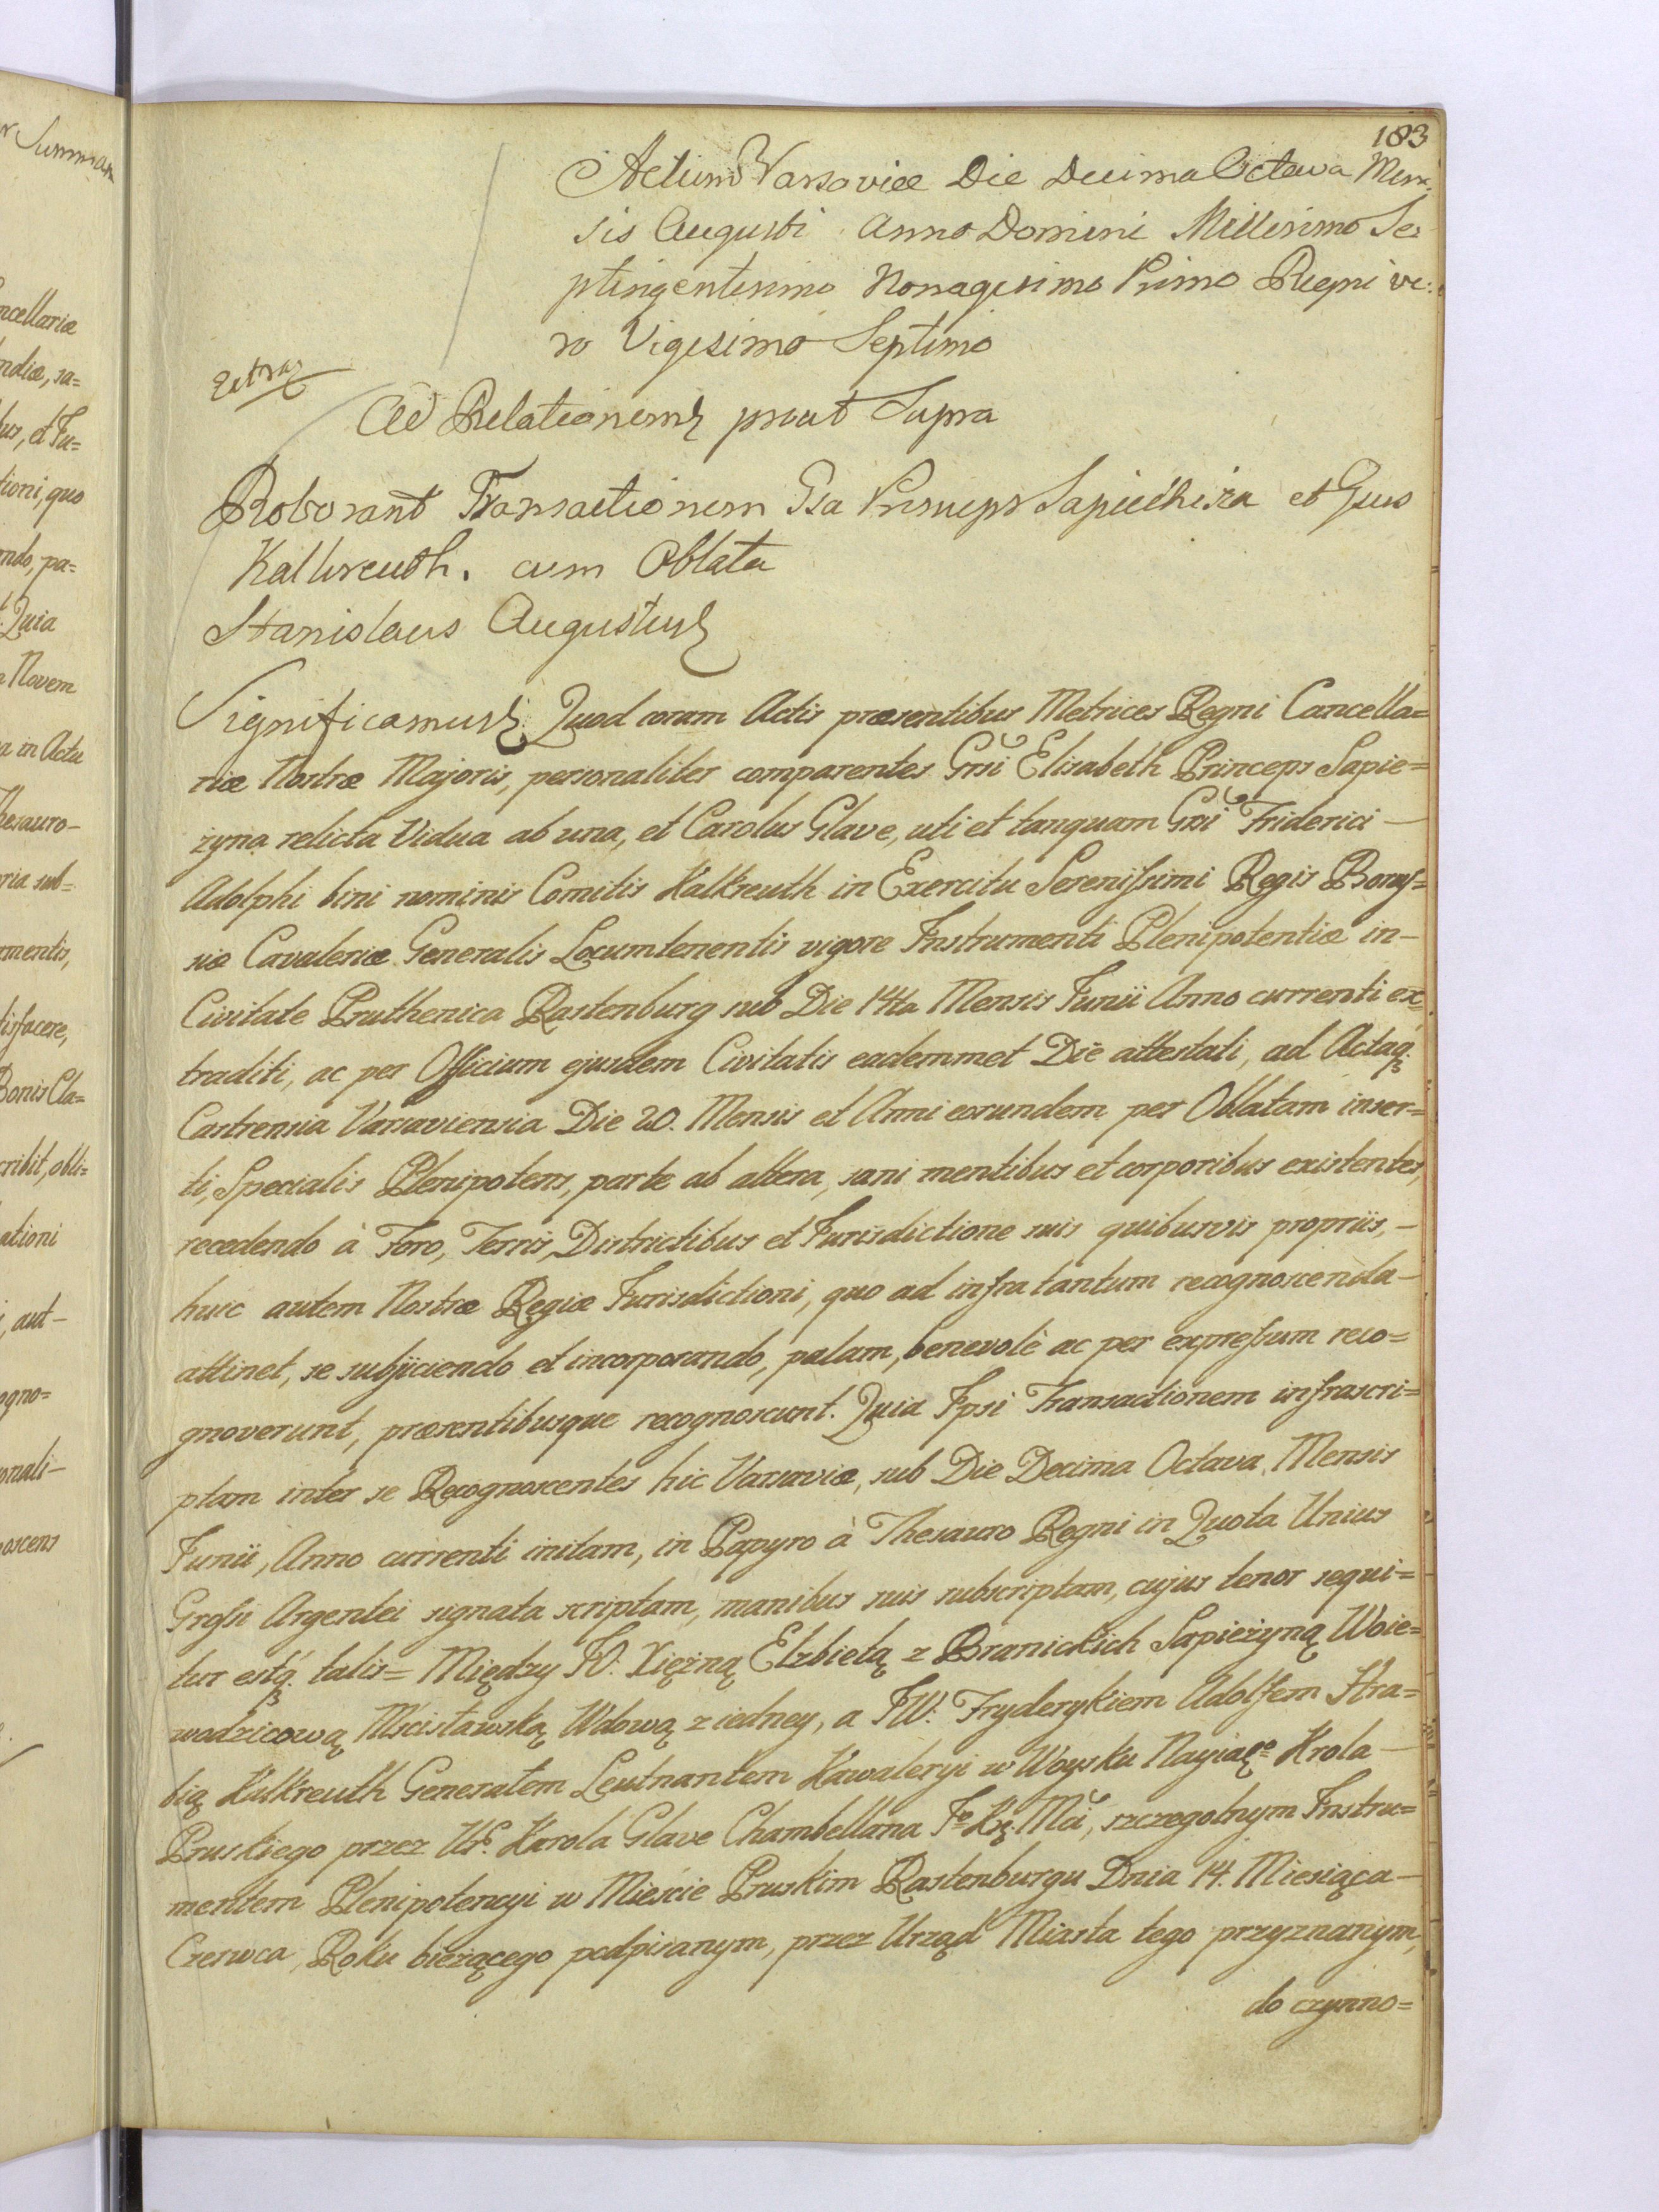 183
Actum Varsoviæ Die Decima Octava Men-
sis Augusti Anno Domini Millesimo Se=
ptingentesimo Nonagesimo Primo Regni ve:
ro Vigesimo Septimo
Ad Relationem prout Supra
Roborant Transactionem Gsa Princeps Sapiezhina et Gsus
Kalkreuth. cum Oblata
Stanislaus Augustus
Significamus Quod coram Actis præsentibus Metrices Regni Cancella=
riæ Nostræ Majoris, personaliter comparentes Grsi Elisabeth Princeps Sapie=
zyna relicta Vidua ab una, et Carolus Glave, uti et tanquam Grsi Friderici –
Adolphi bini nominis Comitis Kalkreuth in Exercitu Serenissimi Regis Borus=
siæ Cavaleriæ Generalis Locumtenentis vigore Instrumenti Plenipotentiæ in –
Civitate Pruthenica Rastenburg sub Die 14ta Mensis Junii Anno currenti ex
traditi, ac per Officium ejusdem Civitatis eademmet Die attestati, ad Actaq.
Castrensia Varsaviensia Die 20. Mensis et Anni eorundem per Oblatam inser=
ti, Specialis Plenipotens, parte ab altera, sani mentibus et corporibus existentes,
recedendo à Foro, Terris, Districtibus et Jurisdictione suis quibusvis propriis, –
huic autem Nostræ Regiæ Jurisdictioni, quo ad infra tantum recognoscenda –
attinet, se subjiciendo et incorporando, palam, benevolè ac per expressum reco=
gnoverunt, præsentibusque recognoscunt. Quia Ipsi Transactionem infrascri=
ptam inter se Recognoscentes hic Varsaviæ, sub Die Decima Octava Mensis
Junii, Anno currenti initam, in Papyro à Thesauro Regni in Quota Unius
Grossi Argentei signata scriptam, manibus suis subscriptam, cujus tenor sequi=
tur estq. talis = Między JO: Xiężną Elzbietą z Branickich Sapieżyną Woie=
wodzicową Mścisławską Wdową z iedney, a JW: Fryderykiem Adolfem Hra=
bią Kalkreuth Generałem Leutnantem Kawaleryi w Woysku Nayiaśgo Krola –
Pruskiego przez Ur. Karola Glave Chambellana Jo Kr. Mci, szczegolnym Instru=
mentem Plenipotencyi w Mieście Pruskim Rastenburgu Dnia 14. Miesiąca –
Czerwca, Roku bieżącego podpisanym, przez Urząd Miasta tego przyznanym,
do czynno=